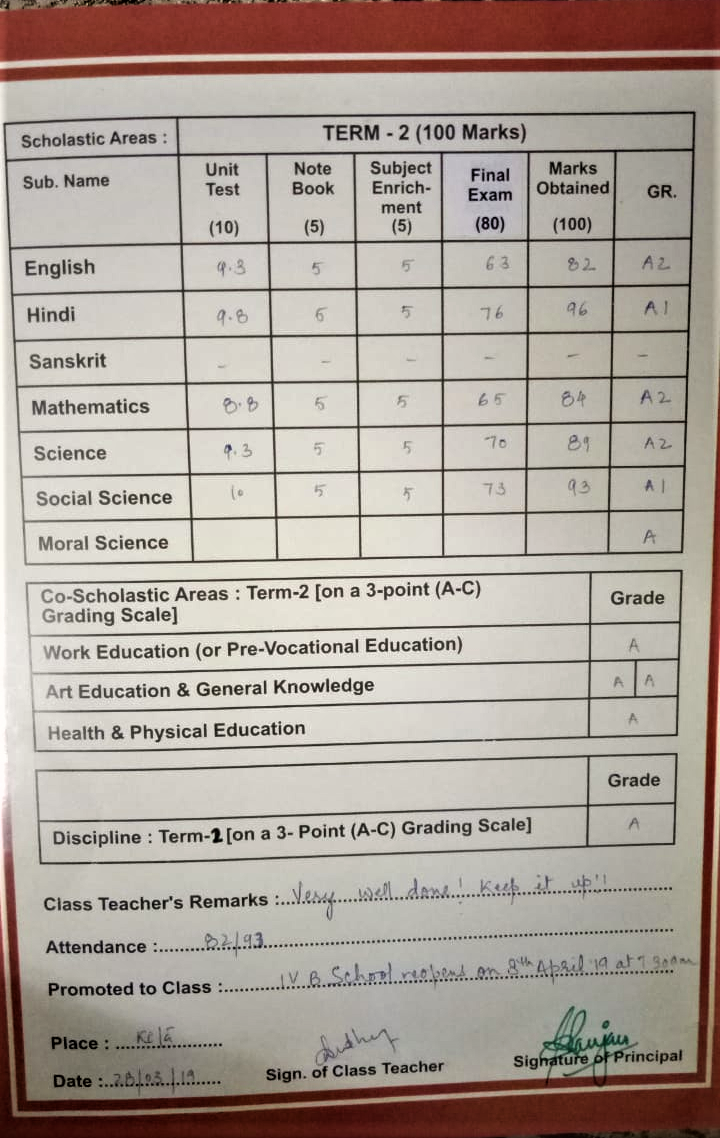 Scholastic Areas : TERM - 2 (100 Marks)
Sub. Name Unit Test (10) Note Book (5) Subject Enrich-ment (5) Final Exam (80) Marks Obtained (100) GR.
English 9.3 5 5 63 82 A2
Hindi 9.8 5 5 76 96 A1
Sanskrit - - - - - -
Mathematics 8.8 5 5 65 84 A2
Science 9.3 5 5 70 89 A2
Social Science 10 5 5 73 93 A1
Moral Science A
Co-Scholastic Areas : Term-2 [on a 3-point (A-C) Grade
Grading Scale]
Work Education (or Pre-Vocational Education) A
Art Education & General Knowledge A A
Health & Physical Education A
Grade
Discipline : Term-2 [on a 3- Point (A-C) Grading Scale] A
Class Teacher's Remarks : Very well done! Keep it up!!
Attendance : 82/93
Promoted to Class : IV B School reopens on 8th April '19 at 7.30am
Place :
Date : 28/03/19 Sign. of Class Teacher Signature of Principal